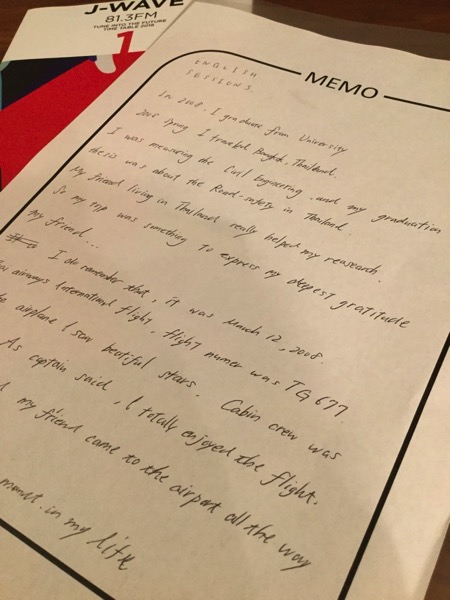 J-WAVE
81.3FM
TUNE INTO THE FUTURE
TIME TABLE 2018
1
MEMO
ENGLISH
SESSIONS.
In 2008. I graduate from University
2008 Spring I traveled Bangkok, Thailand.
I was measuring the Civil Engineering. and my graduation
thesis was about the Road-safety in Thailand.
My friend living in Thailand really helped my reasearch.
So my trip was something to express my deepest gratitude
my friend...
I do remember that, it was March 12, 2008.
airways International flight, flight numer was TG 677
airplane I saw beutiful stars. Cabin crew was
As captain said, I totally enjoyed the flight.
my friend came to the airport all the way
in my life